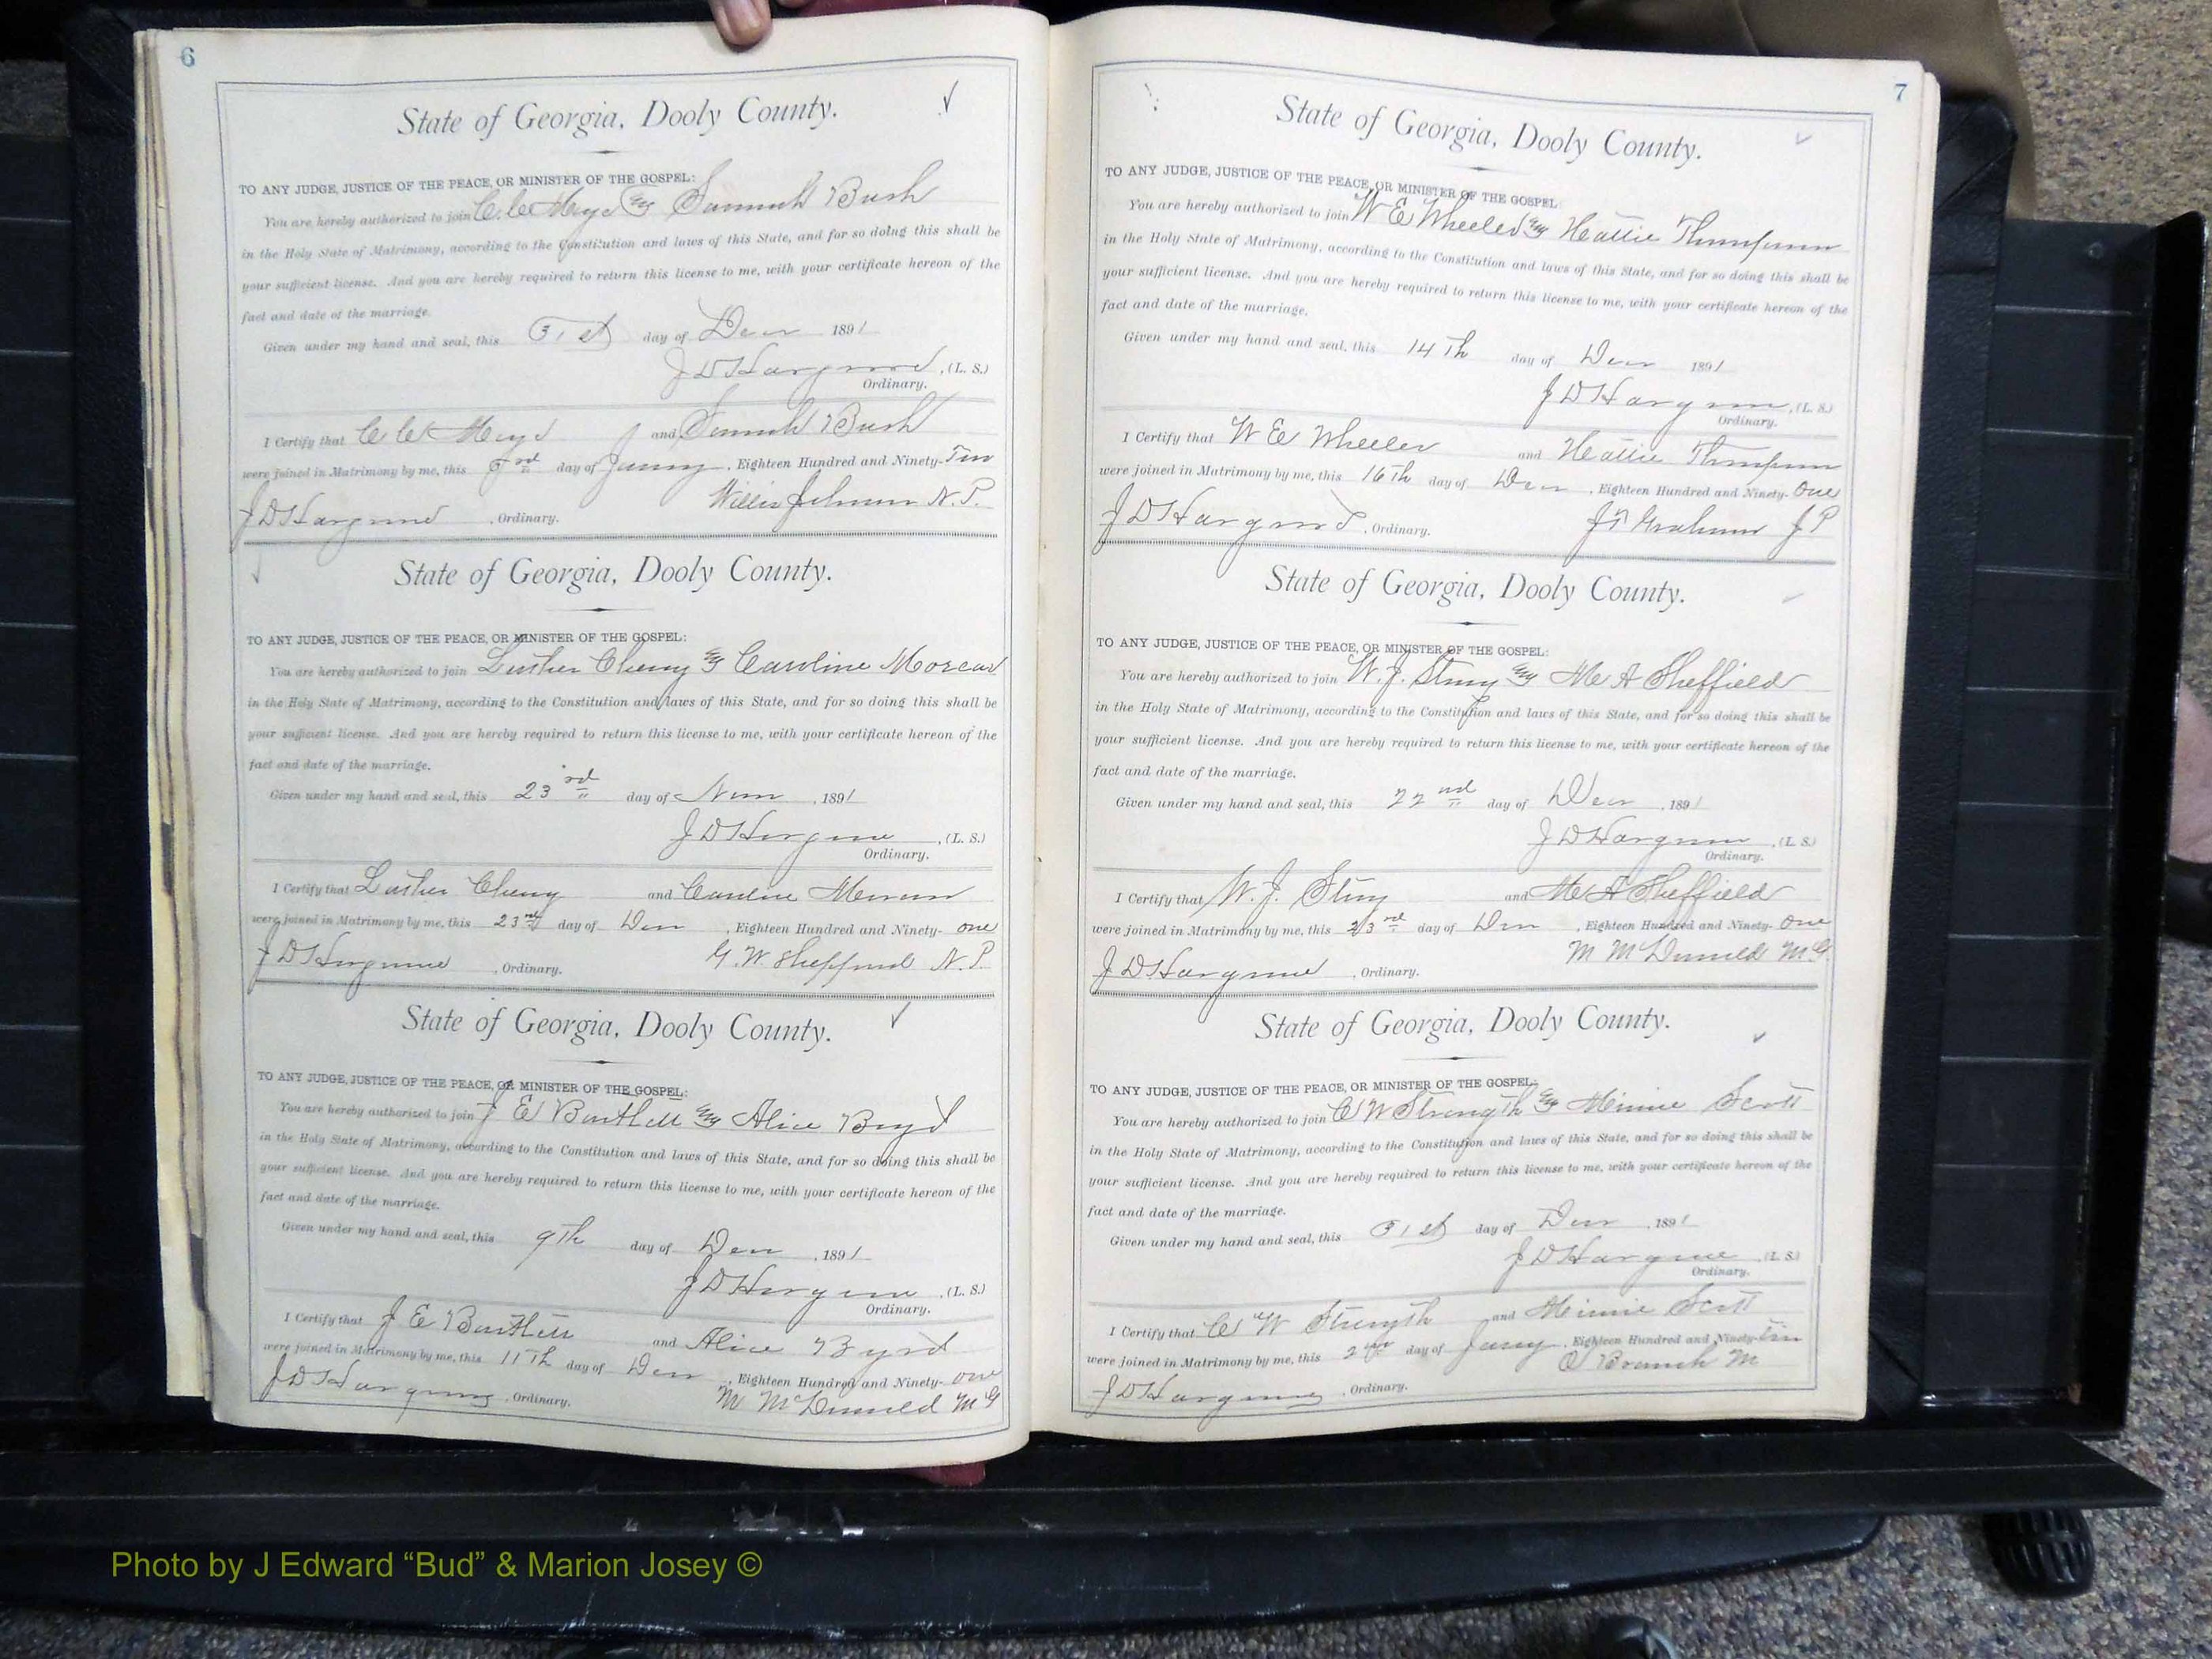 6
State of Georgia, Dooly County.
TO ANY JUDGE, JUSTICE OF THE PEACE, OR MINISTER OF THE GOSPEL:
You are hereby authorized to join Bush
in the Holy State of Matrimony, according to the Constitution and laws of this State, and for so doing this shall be
your sufficient license. And you are hereby required to return this license to me, with your certificate hereon of the
fact and date of the marriage.
Given under my hand and seal, this 31st day of Decr 1891
J D Hargrove, (L. S.)
Ordinary.
I Certify that and Bush
were joined in Matrimony by me, this 3rd day of , Eighteen Hundred and Ninety-Two
Willis Johnson N. P.
J D Hargrove, Ordinary.
State of Georgia, Dooly County.
TO ANY JUDGE, JUSTICE OF THE PEACE, OR MINISTER OF THE GOSPEL:
You are hereby authorized to join Luther Cherry & Caroline
in the Holy State of Matrimony, according to the Constitution and laws of this State, and for so doing this shall be
your sufficient license. And you are hereby required to return this license to me, with your certificate hereon of the
fact and date of the marriage.
Given under my hand and seal, this 23rd day of , 1891
J D Hargrove, (L. S.)
Ordinary.
I Certify that Luther Cherry and Caroline
were joined in Matrimony by me, this 23rd day of Decr, Eighteen Hundred and Ninety-one
G. W. Sheppard N. P.
J D Hargrove, Ordinary.
State of Georgia, Dooly County.
TO ANY JUDGE, JUSTICE OF THE PEACE, OR MINISTER OF THE GOSPEL:
You are hereby authorized to join J E Bartlett & Alice Byrd
in the Holy State of Matrimony, according to the Constitution and laws of this State, and for so doing this shall be
your sufficient license. And you are hereby required to return this license to me, with your certificate hereon of the
fact and date of the marriage.
Given under my hand and seal, this 9th day of Decr, 1891
J D Hargrove, (L. S.)
Ordinary.
I Certify that J E Bartlett and Alice Byrd
were joined in Matrimony by me, this 11th day of Decr, Eighteen Hundred and Ninety-one
J D Hargrove, Ordinary. M McDonald M G
7
State of Georgia, Dooly County.
TO ANY JUDGE, JUSTICE OF THE PEACE, OR MINISTER OF THE GOSPEL:
You are hereby authorized to join W E Wheeler & Hattie Thompson
in the Holy State of Matrimony, according to the Constitution and laws of this State, and for so doing this shall be
your sufficient license. And you are hereby required to return this license to me, with your certificate hereon of the
fact and date of the marriage.
Given under my hand and seal, this 14th day of Decr 1891
J D Hargrove, (L. S.)
Ordinary.
I Certify that W E Wheeler and Hattie Thompson
were joined in Matrimony by me, this 16th day of Decr, Eighteen Hundred and Ninety-One
J D Hargrove, Ordinary. Graham J P
State of Georgia, Dooly County.
TO ANY JUDGE, JUSTICE OF THE PEACE, OR MINISTER OF THE GOSPEL:
You are hereby authorized to join W. J. Story & M A Sheffield
in the Holy State of Matrimony, according to the Constitution and laws of this State, and for so doing this shall be
your sufficient license. And you are hereby required to return this license to me, with your certificate hereon of the
fact and date of the marriage.
Given under my hand and seal, this 22nd day of Decr, 1891
J D Hargrove, (L. S.)
Ordinary.
I Certify that W. J. Story and M A Sheffield
were joined in Matrimony by me, this 23rd day of Decr, Eighteen Hundred and Ninety-One
M McDonald M G
J D Hargrove, Ordinary.
State of Georgia, Dooly County.
TO ANY JUDGE, JUSTICE OF THE PEACE, OR MINISTER OF THE GOSPEL:
You are hereby authorized to join C W Strength & Minnie Scott
in the Holy State of Matrimony, according to the Constitution and laws of this State, and for so doing this shall be
your sufficient license. And you are hereby required to return this license to me, with your certificate hereon of the
fact and date of the marriage.
Given under my hand and seal, this 31st day of Decr, 1891
J D Hargrove, (L. S.)
Ordinary.
I Certify that C W Strength and Minnie Scott
were joined in Matrimony by me, this day of , Eighteen Hundred and Ninety-Two
Branch M
J D Hargrove, Ordinary.
Photo by J Edward “Bud” & Marion Josey ©